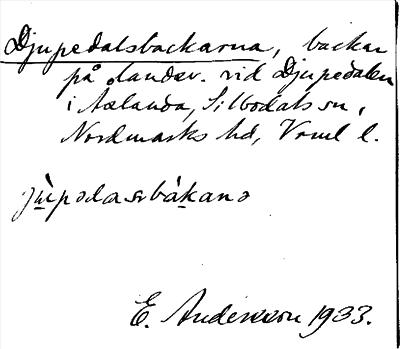 Djupedalsbackarna, backar
på landsv. vid Djupedalen
i Åslanda, Silbodals sn,
Nordmarks hd, Vrml l.
jùpədasrbákanə
E. Andersson 1933.